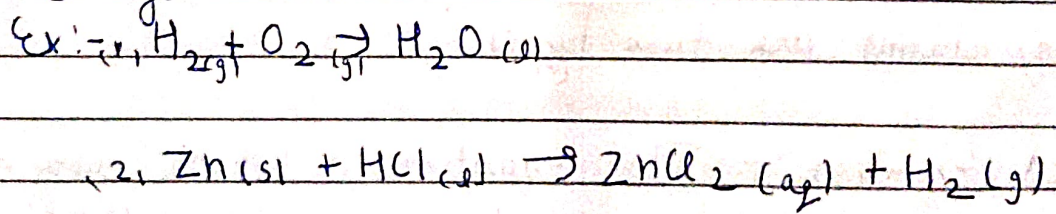 Ex:- 1, H2(g) + O2(g) → H2O(l)
2, Zn(s) + HCl(l) → ZnCl2(aq) + H2(g)